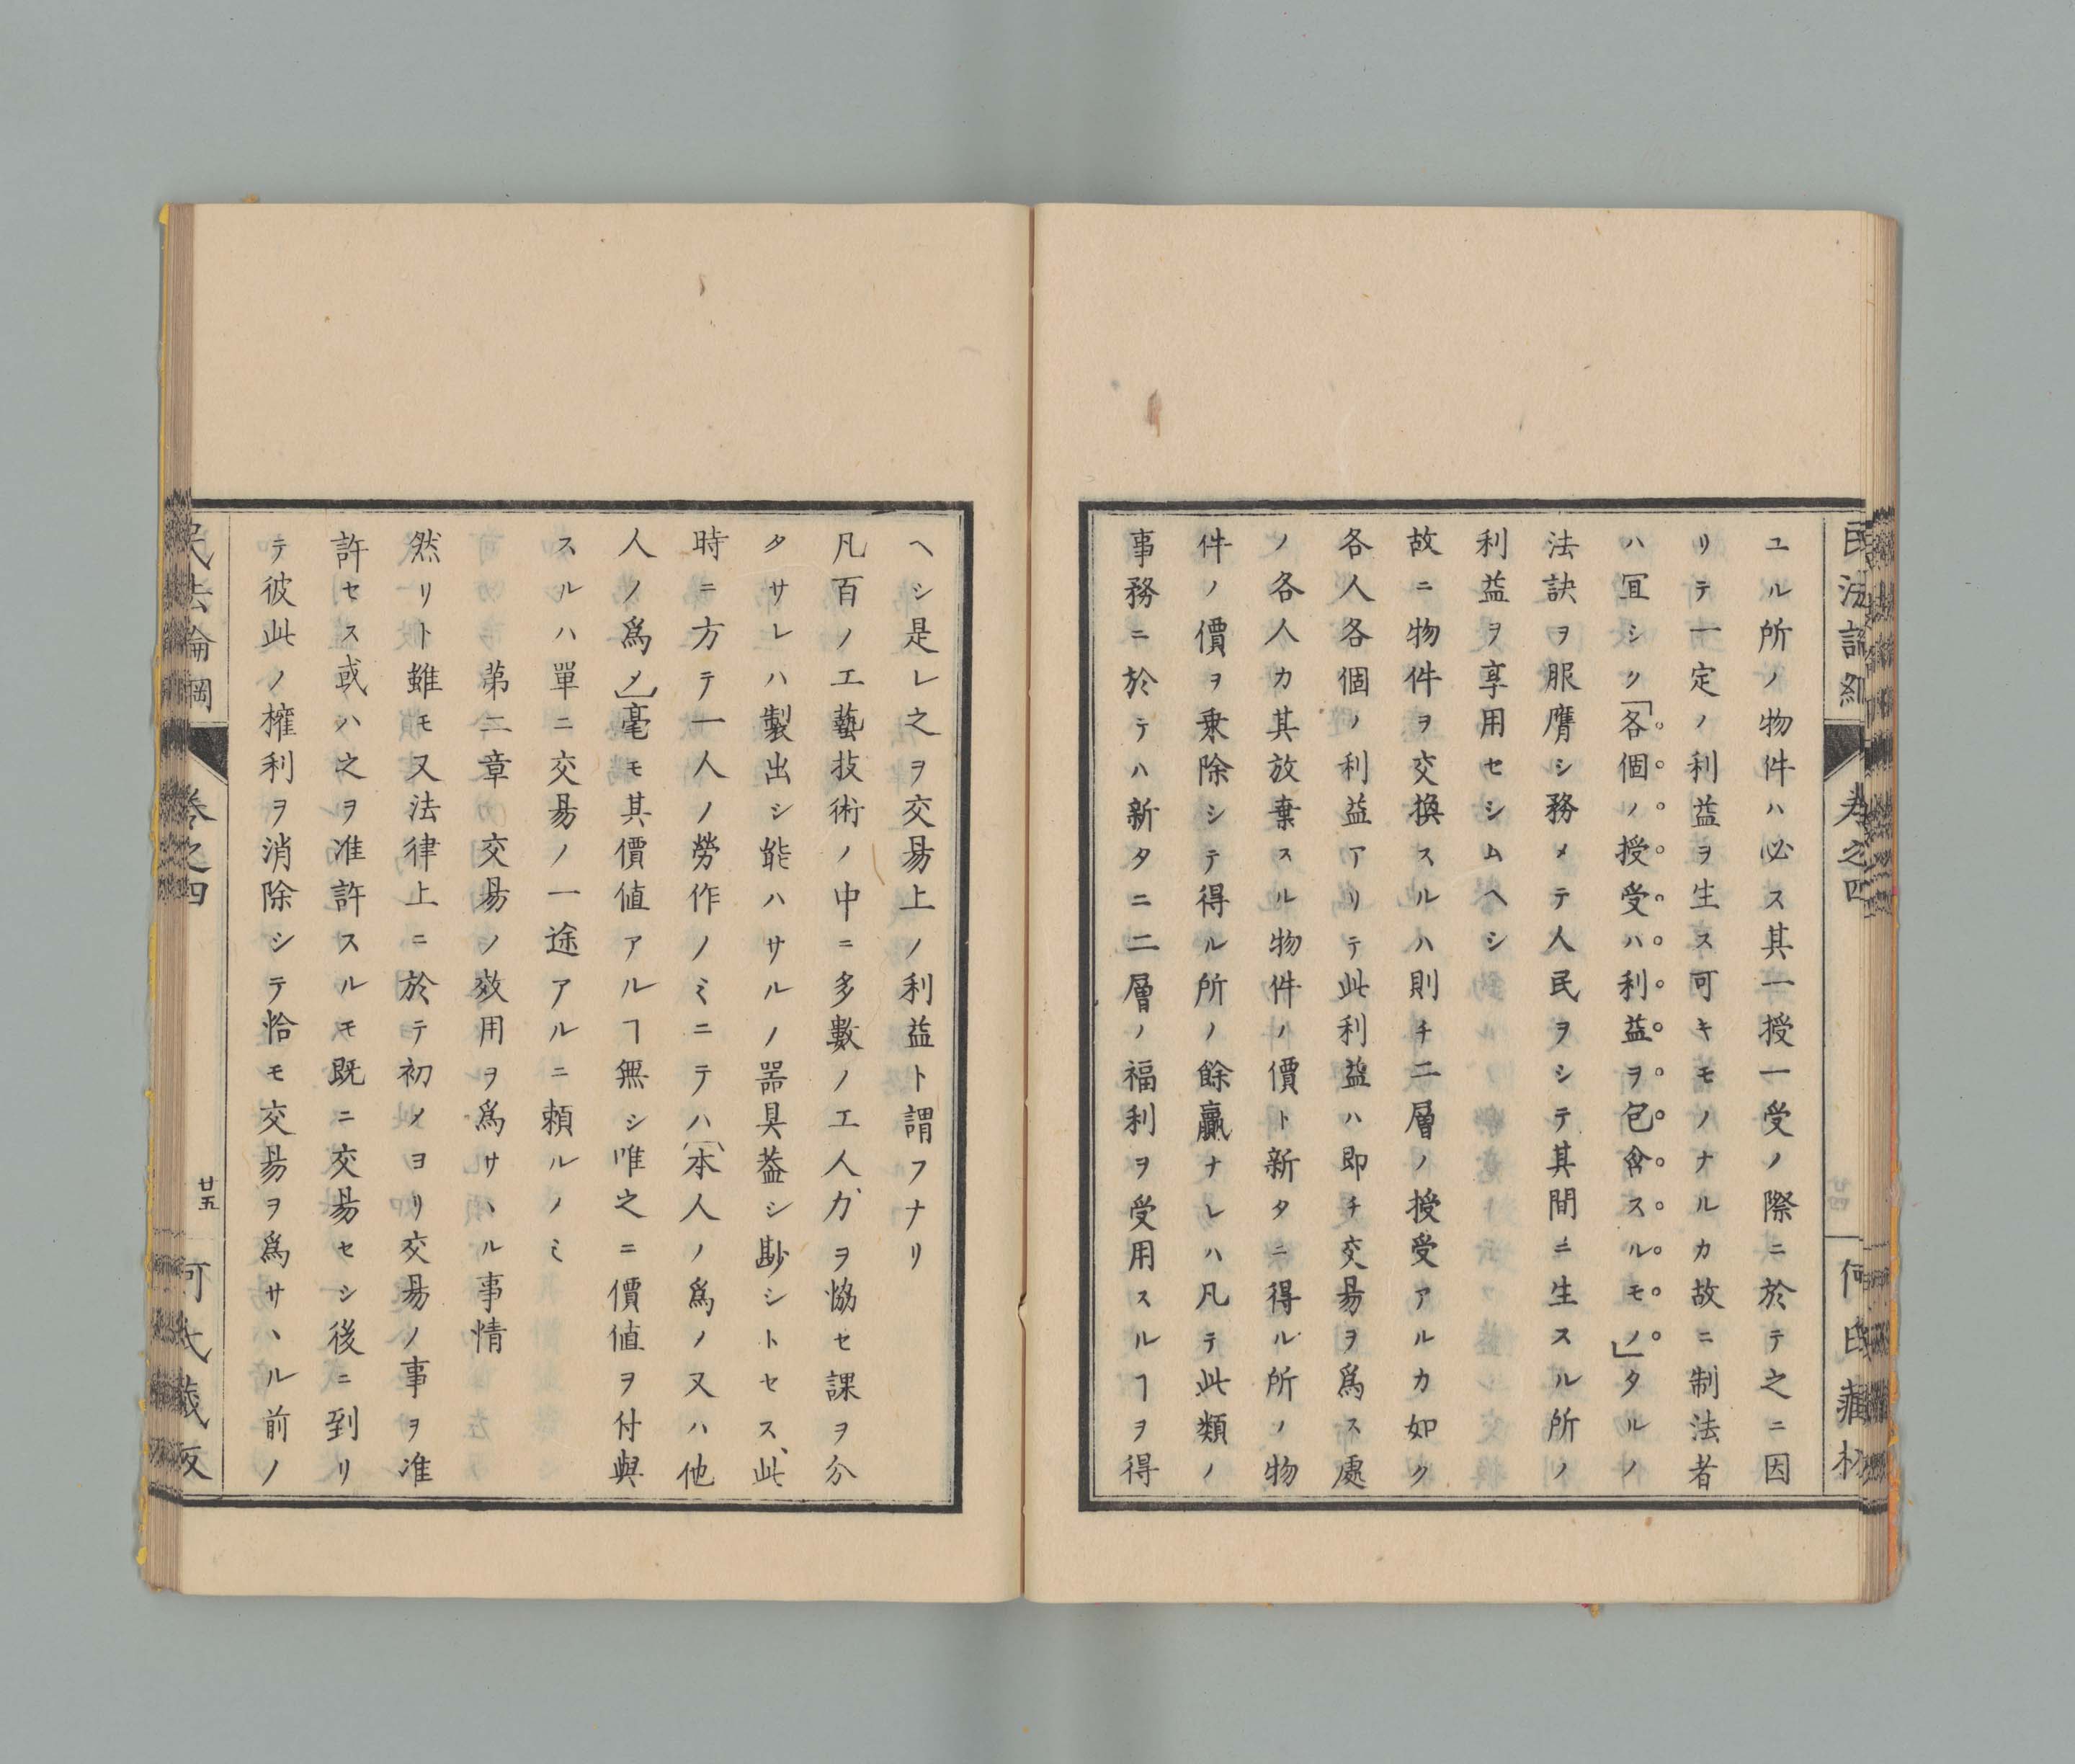 民法論綱 卷之四 何氏藏板
ユル所ノ物件ハ必ス其一授一受ノ際ニ於テ之ニ因
リテ一定ノ利益ヲ生ス可キモノナルカ故ニ制法者
ハ冝シク「各個ノ授受ハ利益ヲ包含スルモノ」タルノ
法訣ヲ服膺シ務メテ人民ヲシテ其間ニ生スル所ノ
利益ヲ享用セシムヘシ
故ニ物件ヲ交換スルハ則チ二層ノ授受アルカ如ク
各人各個ノ利益アリテ此利益ハ即チ交易ヲ爲ス處
ノ各人カ其放棄スル物件ノ價ト新タニ得ル所ノ物
件ノ價ヲ乗除シテ得ル所ノ餘贏ナレハ凡テ此類ノ
事務ニ於テハ新タニ二層ノ福利ヲ受用スルヿヲ得
ヘシ是レ之ヲ交易上ノ利益ト謂フナリ
凡百ノ工藝技術ノ中ニ多數ノ工人力ヲ恊セ課ヲ分
タサレハ製出シ能ハサルノ噐具葢シ尠シトセス、此
時ニ方テ一人ノ勞作ノミニテハ「本人ノ爲ノ又ハ他
人ノ爲メ」毫モ其價値アルヿ無シ唯之ニ價値ヲ付與
スルハ單ニ交易ノ一途アルニ頼ルノミ
第二章 交易ノ效用ヲ爲サヽル事情
然リト雖モ又法律上ニ於テ初メヨリ交易ノ事ヲ准
許セス或ハ之ヲ准許スルモ既ニ交易セシ後ニ到リ
テ彼此ノ權利ヲ消除シテ恰モ交易ヲ爲サヽル前ノ
民法論綱 卷之四 廿五 何氏藏板